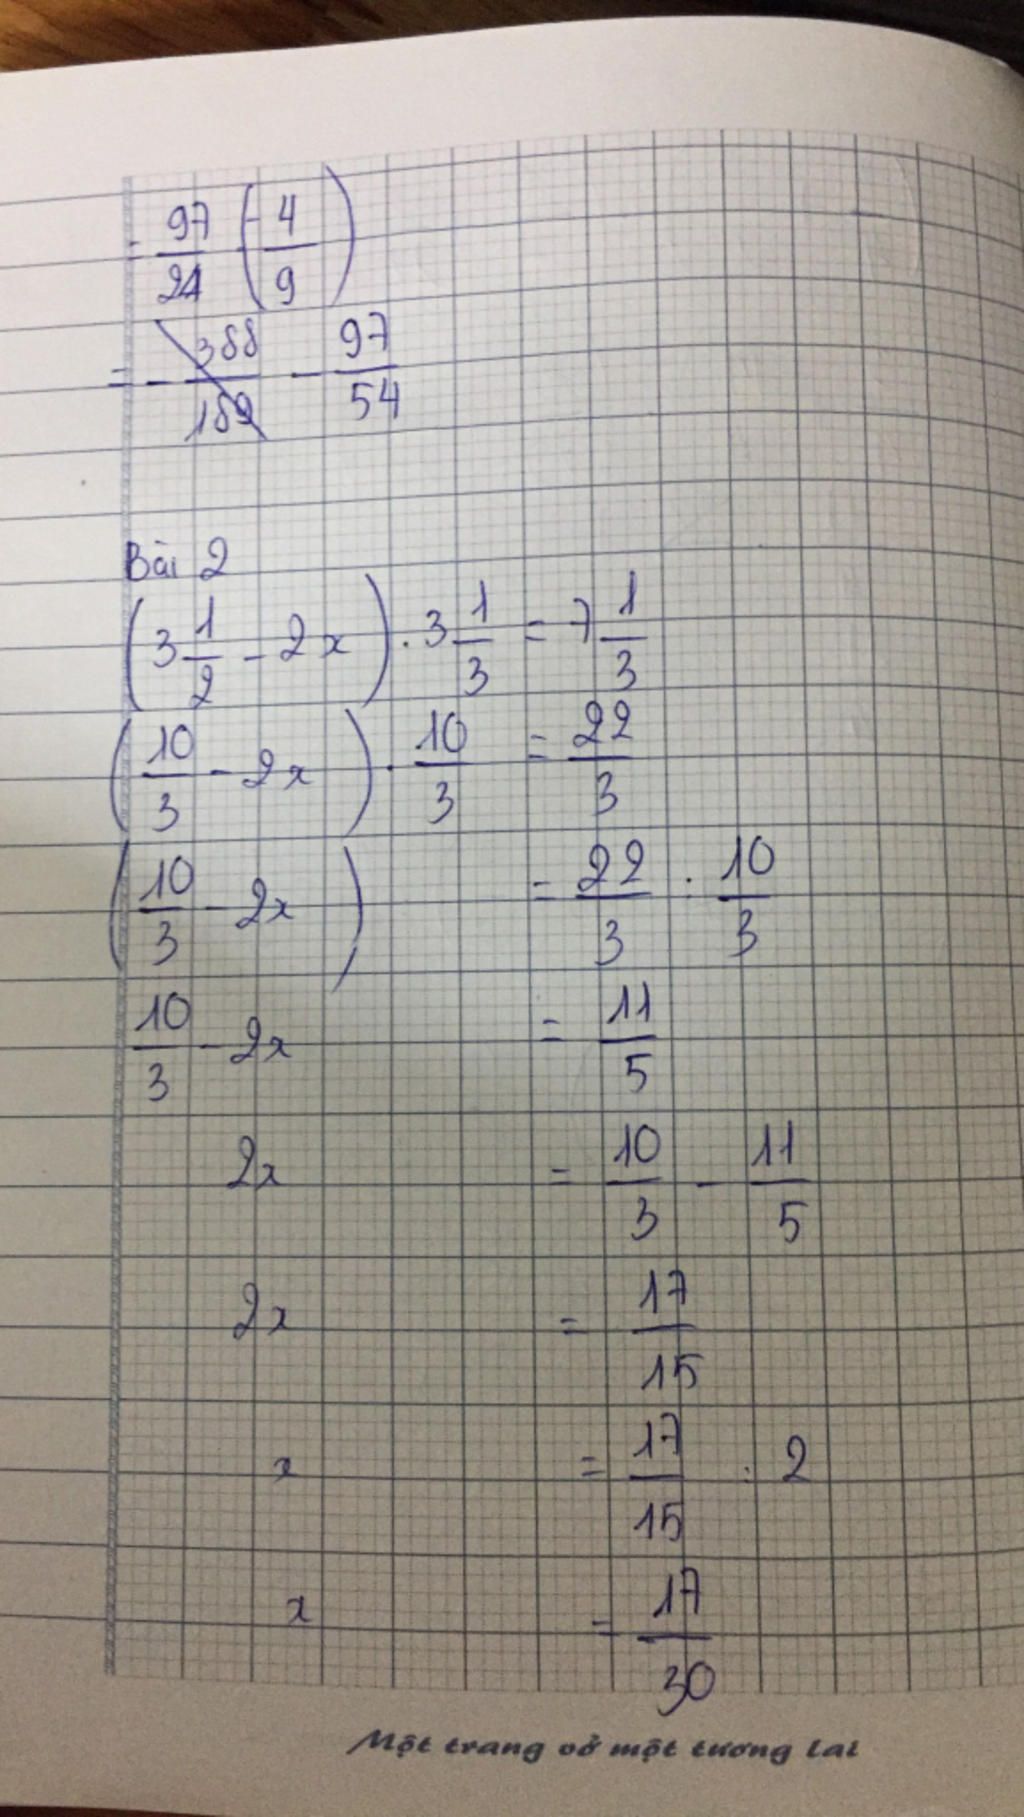 = 97/24 (-4/9)
= - 388/189 - 97/54
Bài 2
(3 1/2 - 2x) . 3 1/3 = 7 1/3
(10/3 - 2x) . 10/3 = 22/3
(10/3 - 2x) = 22/3 : 10/3
10/3 - 2x = 11/5
2x = 10/3 - 11/5
2x = 17/15
x = 17/15 : 2
x = 17/30
Một trang vở một tương lai